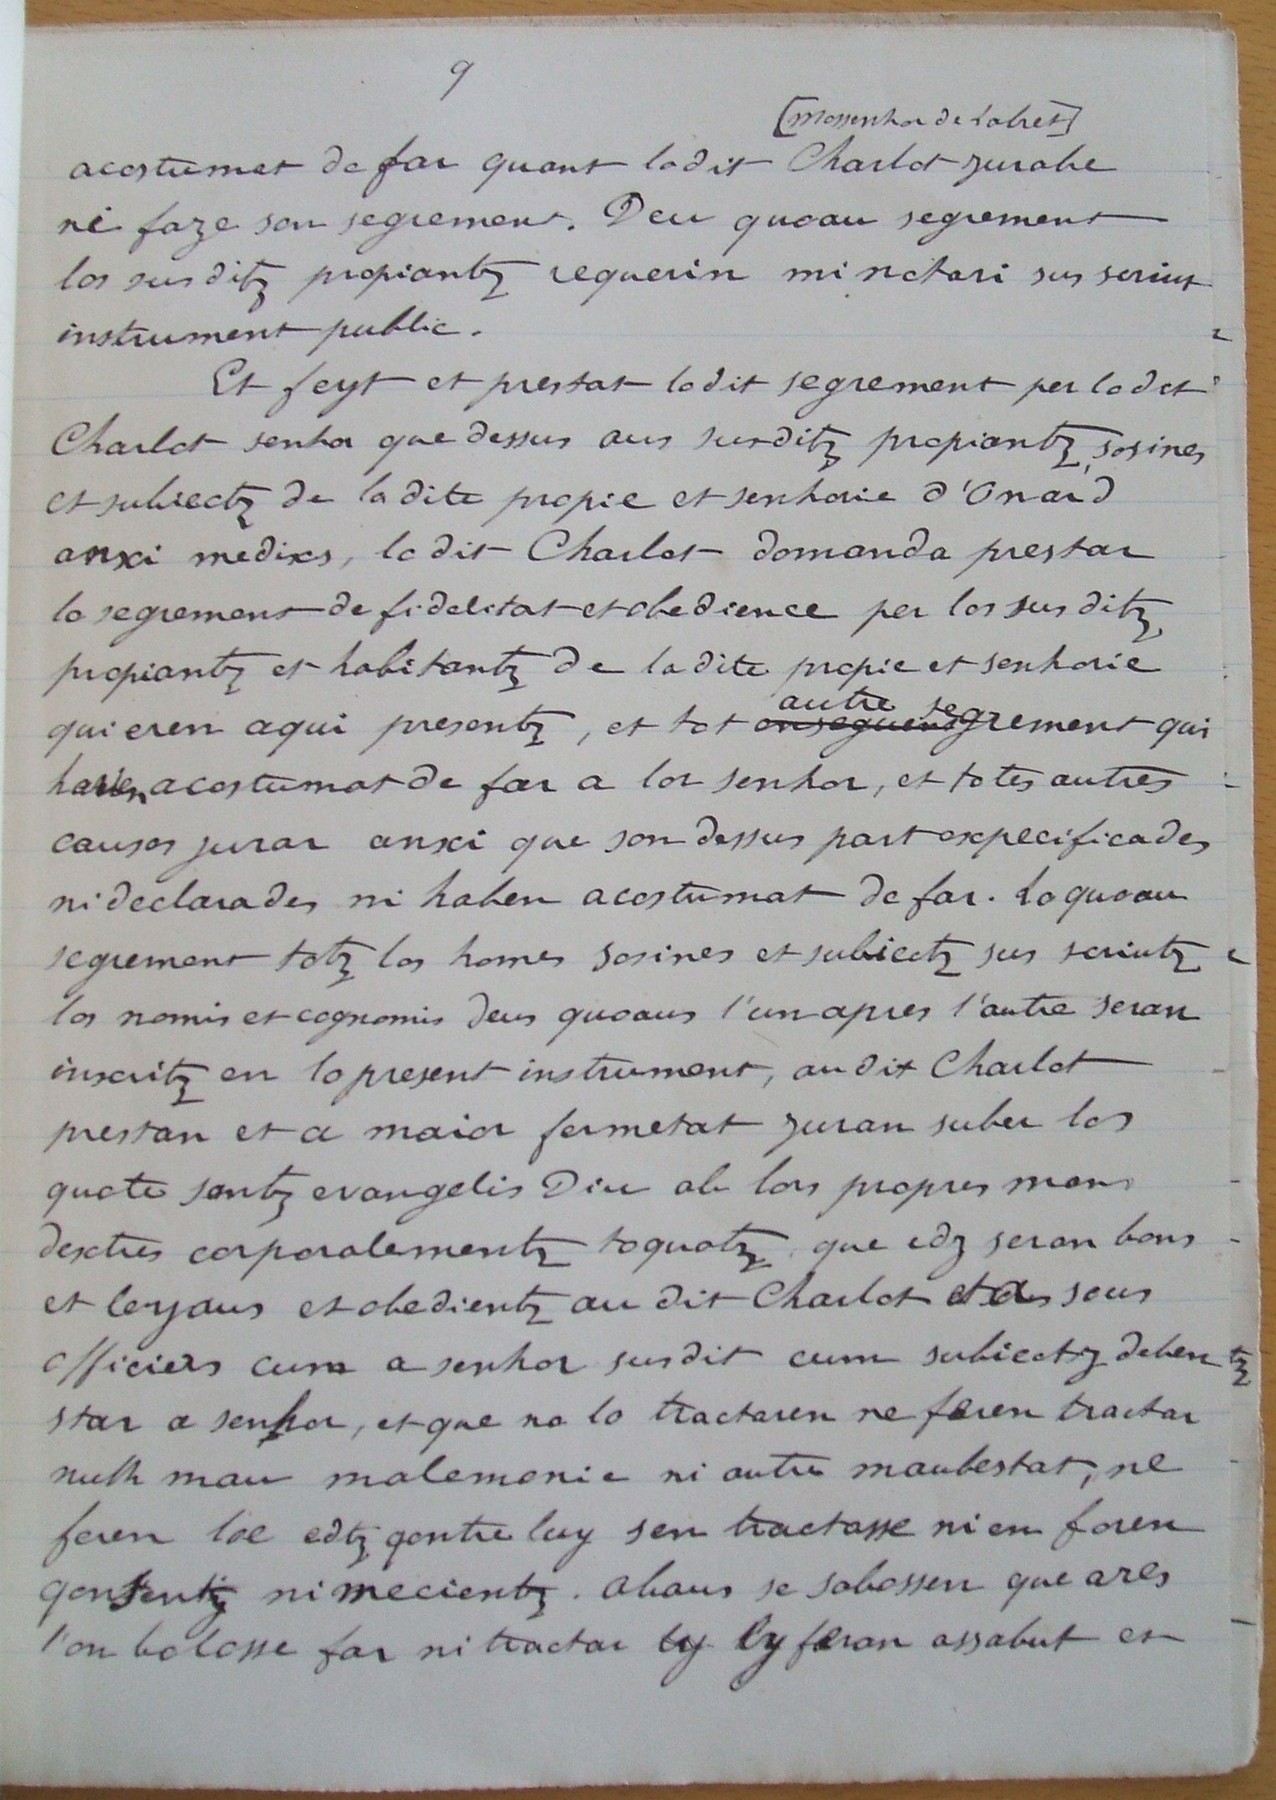 9
[mossenhor de Labret]
acostumet de far quant lodit Charlot jurabe
ni faze son segrement. Deu quoau segrement
los susditz propiantz requerin mi notari sus scriut
instrument public.
Et feyt et prestat lodit segrement per lodit
Charlot senhor que dessus aus susditz propiantz, sosines
et subiectz de ladite propie et senhorie d'Onard
anxi medixs, lodit Charlot domanda prestar
lo segrement de fidelitat et obedience per los susditz
propiantz et habitantz de ladite propie et senhorie
qui eren aqui presentz, et tot autre segrement qui
haven acostumat de far a lor senhor, et totes autres
causes jurar anxi que son dessus part expecificades
ni declarades ni haben acostumat de far. Lo quoau
segrement totz los homes sosines et subiectz sus scriutz
los nomis et cognomis deus quoaus l'un apres l'autre seran
inscritz en lo present instrument, audit Charlot
prestan et a maior fermetat juran suber los
quate santz evangelis Diu ab lors propres mans
dextres corporalementz toquatz, que edz seran bons
et leyaus et obedientz au dit Charlot et a sous
officiers cum a senhor susdit cum subiectz deben
star a senhor, et que no lo tractaren ne feren tractar
nulh mau malemanie ni autre maubestat, ne
feren loc edtz contre luy s'en tractasse ni en foren
qonsentz ni mecientz. Abans se sabossen que ares
l'on bolosse far ni tractar ly feran assabut et